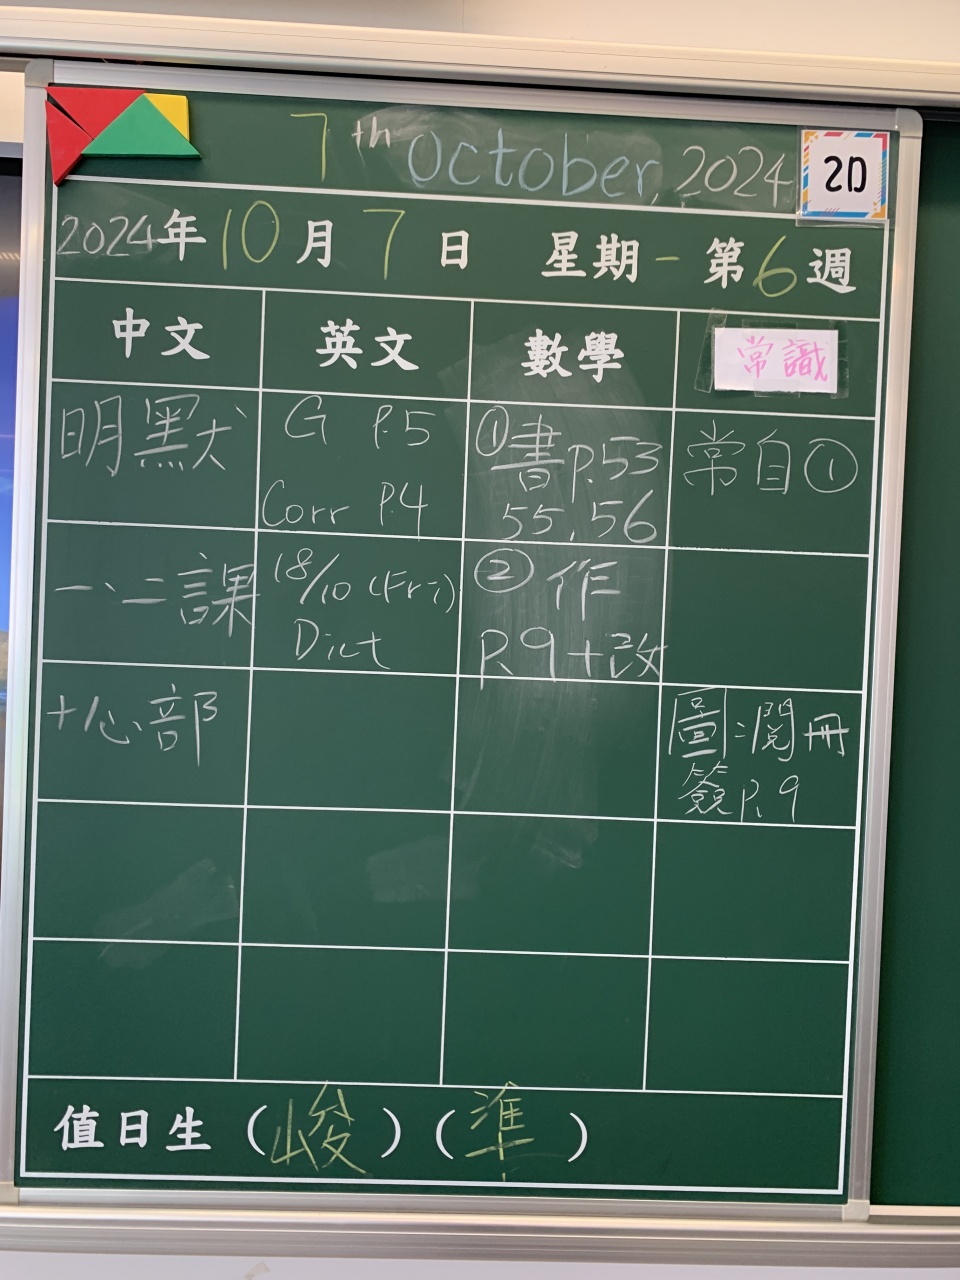 7th October, 2024
2D
2024年10月7日 星期一 第6週
中文 英文 數學 常識
明默
一、二課
+心部
G P.5
Corr P.4
18/10 (Fri)
Dict
①書P.53
55, 56
②作
P.9+改
常自①
圖:閱冊
簽P.9
值日生(峻)(準)